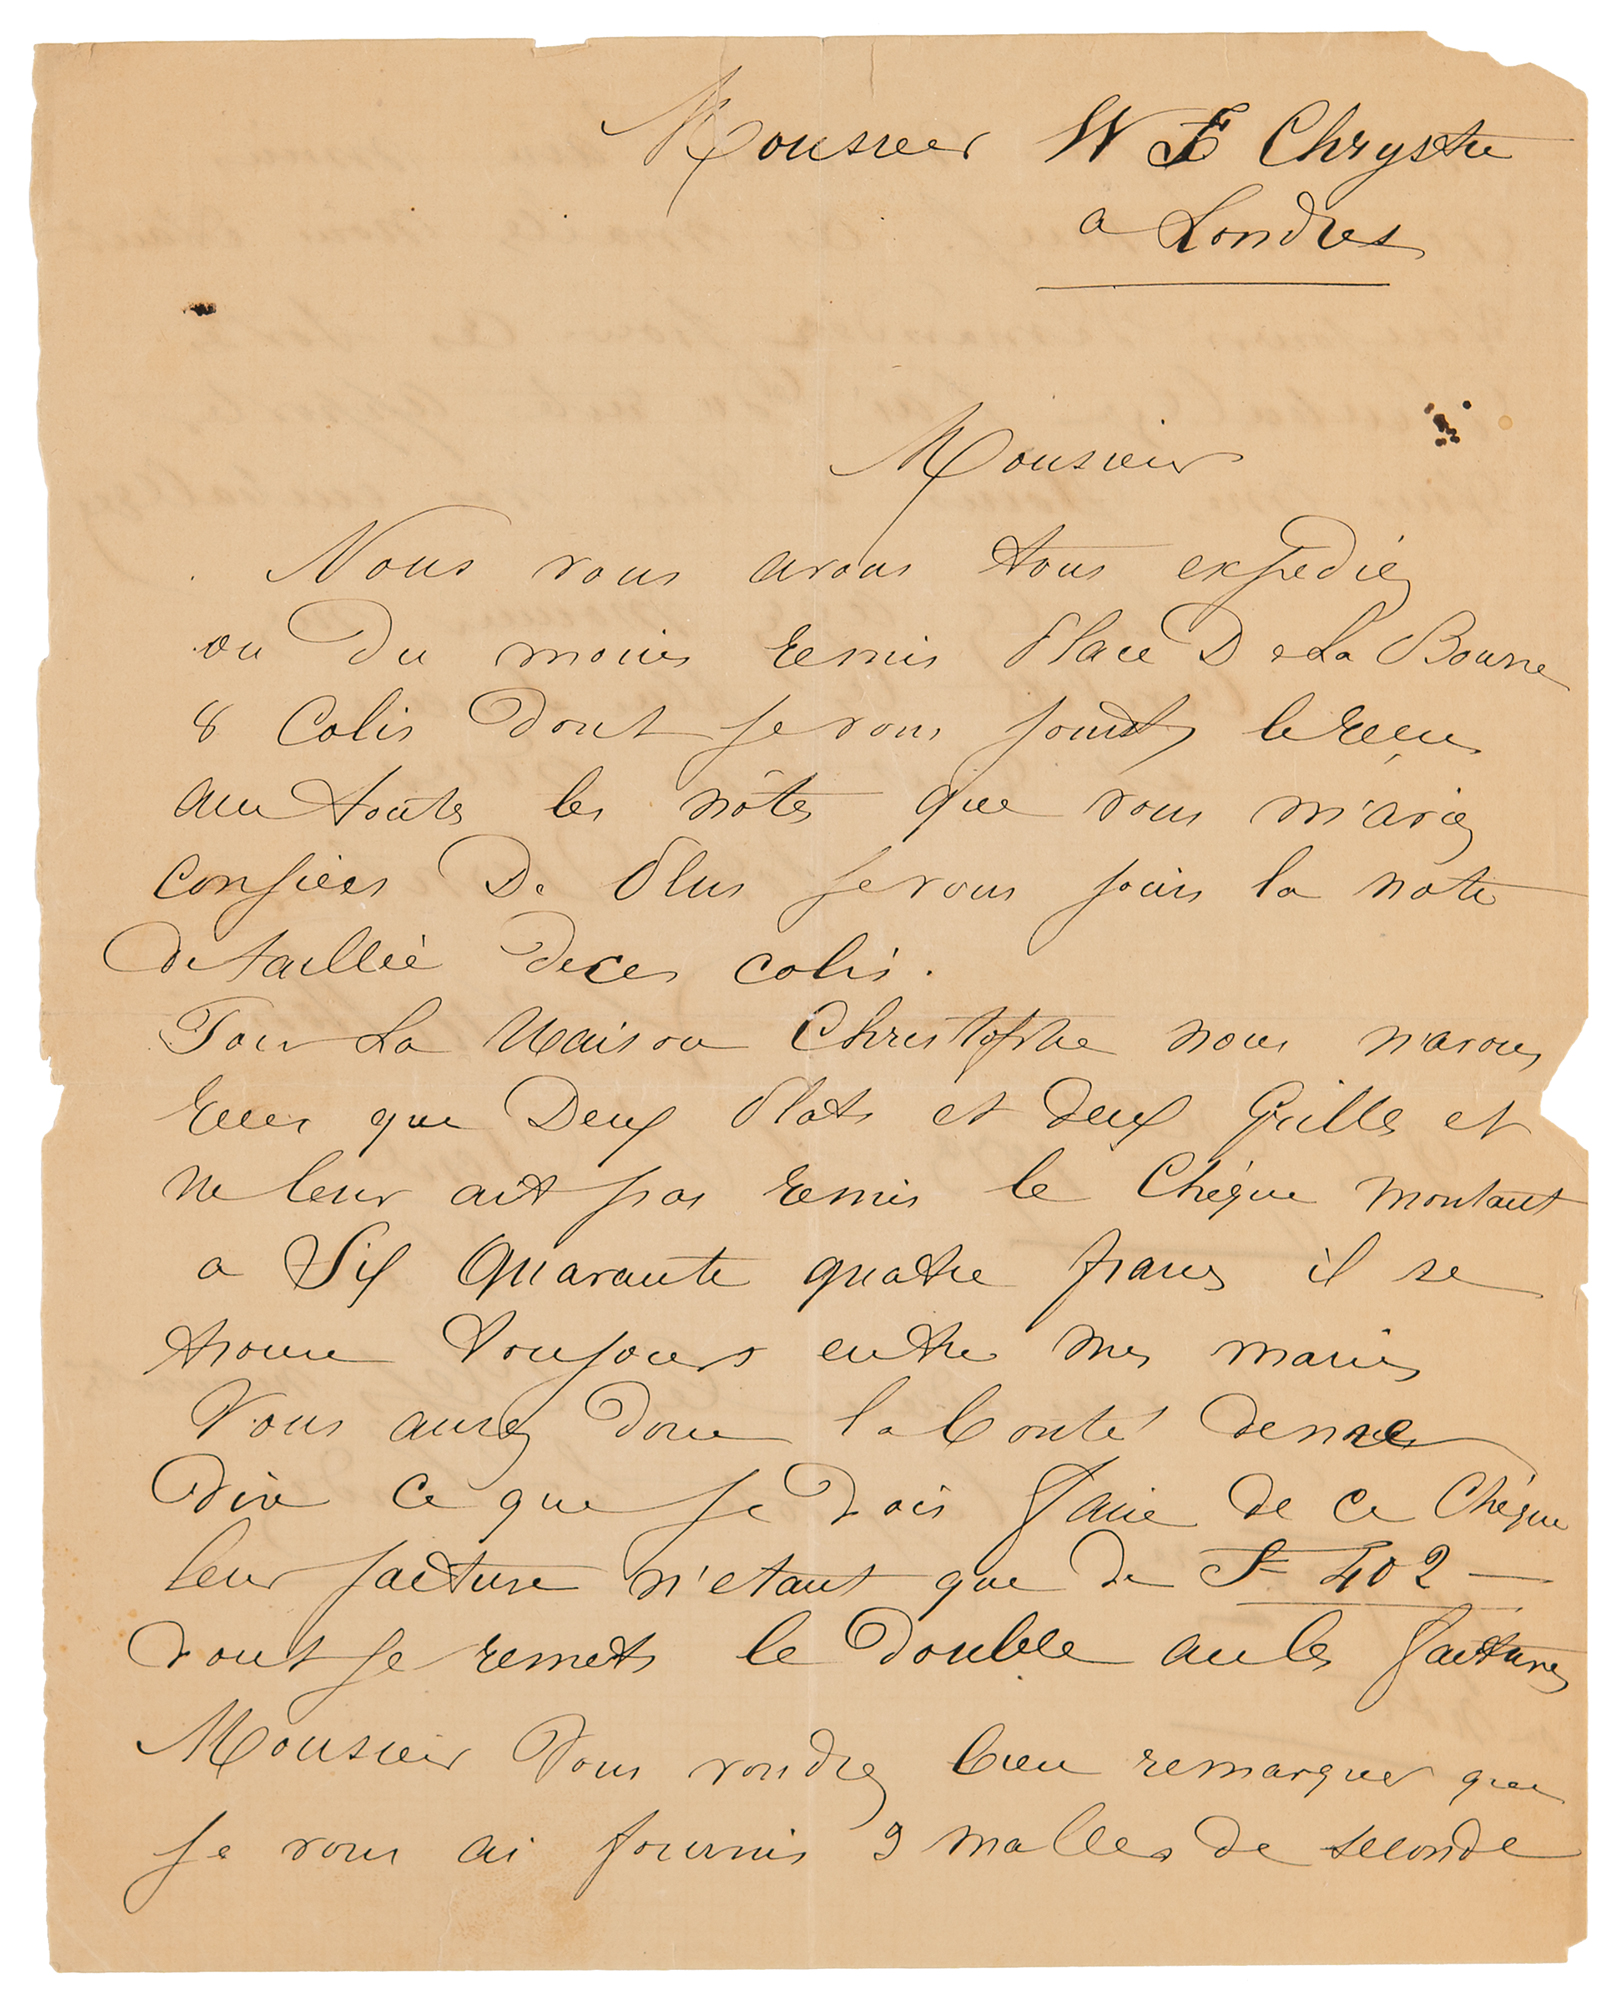 Monsieur W F Chrystie
a Londres
Monsieur
Nous vous avons tous expediéz
ou du moins remis Place De La Bourse
8 Colis dont je vous joints le recus
avec toutes les nôtes que vous m'aviez
confiées De Plus je vous joins la note
detaillée de ces colis.
Pour La Maison Christophe nous n'avons
recus que Deux Plats et deux Grilles et
ne leur ait pas remis le Chéque montant
a Six Quarante quatre francs il se
trouve toujours entre mes mains
Vous aurez donc la bonté de me
dire ce que je dois faire de ce Chéque
leur facture n'etant que de F 402 —
dont je remets le double avec les factures
Monsieur Vous voudrez bien remarquer que
je vous ai fournis 2 malles de seconde